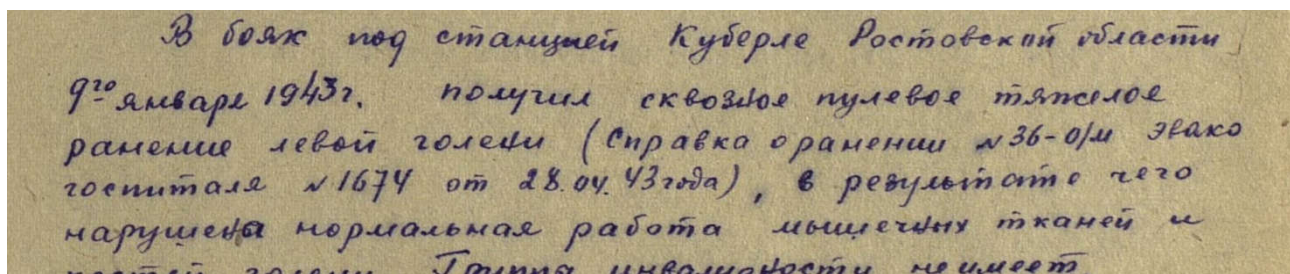 В бояк под станцией Куберле Ростовской области
9го января 1943г. получил сквозное пулевое тяжелое
ранение левой голени (Справка о ранении №36-о/м эвако
госпиталя №1674 от 28.04.43 года), в результате чего
нарушена нормальная работа мышечных тканей и
костей голени. Группа инвалидности не имеет